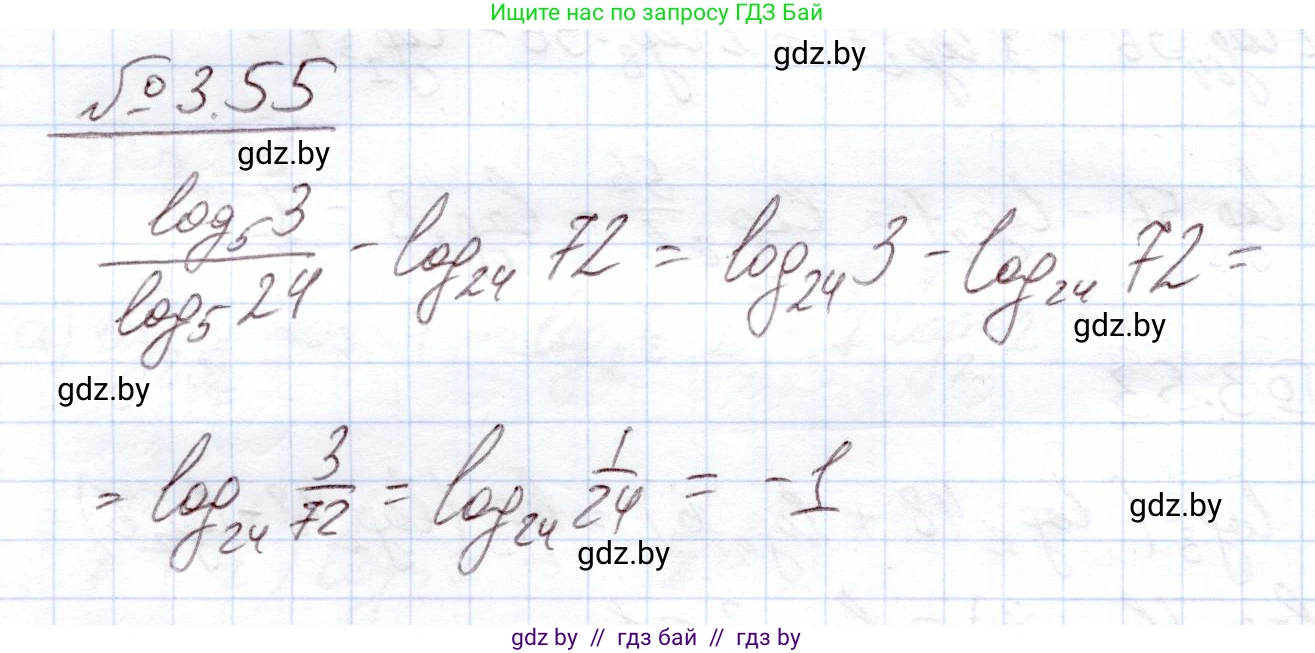 Ищите нас по запросу ГДЗ Бай
gdz.by
№ 3.55
gdz.by
log₅3 / log₅24 - log₂₄ 72 = log₂₄ 3 - log₂₄ 72 =
gdz.by
gdz.by
= log₂₄ 3/72 = log₂₄ 1/24 = -1
gdz.by
gdz.by
gdz by // гдз бай // гдз by